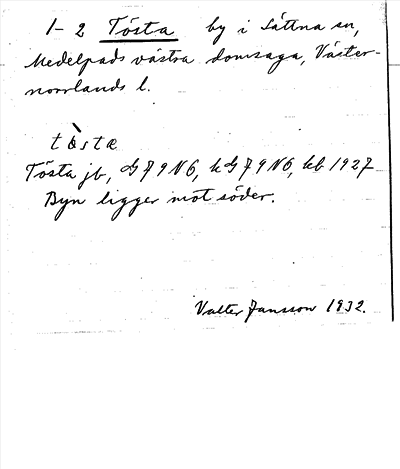 1-2 Tösta by i Sättna sn,
Medelpads västra domsaga, Väster-
norrlands l.
tö̀stæ
Tösta jb, GJ 9 N6, kGJ 9 N6, kb 1927
Byn ligger mot söder.
Valter Jansson 1932.